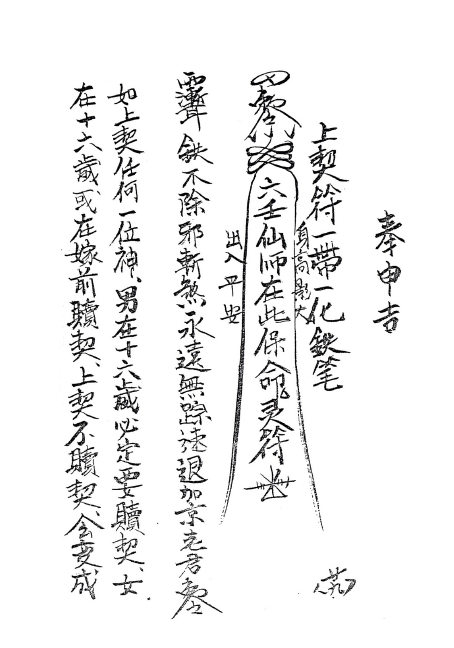 奉申吉
上契符一帶一化鉄筆
六壬仙師在此保命灵符
身高
出入平安
鉄不除邪斬煞永遠無踪速退加京老君
如上契任何一位神、男在十六歲必定要贖契、女
在十六歲或在嫁前贖契、上契不贖契、会变成